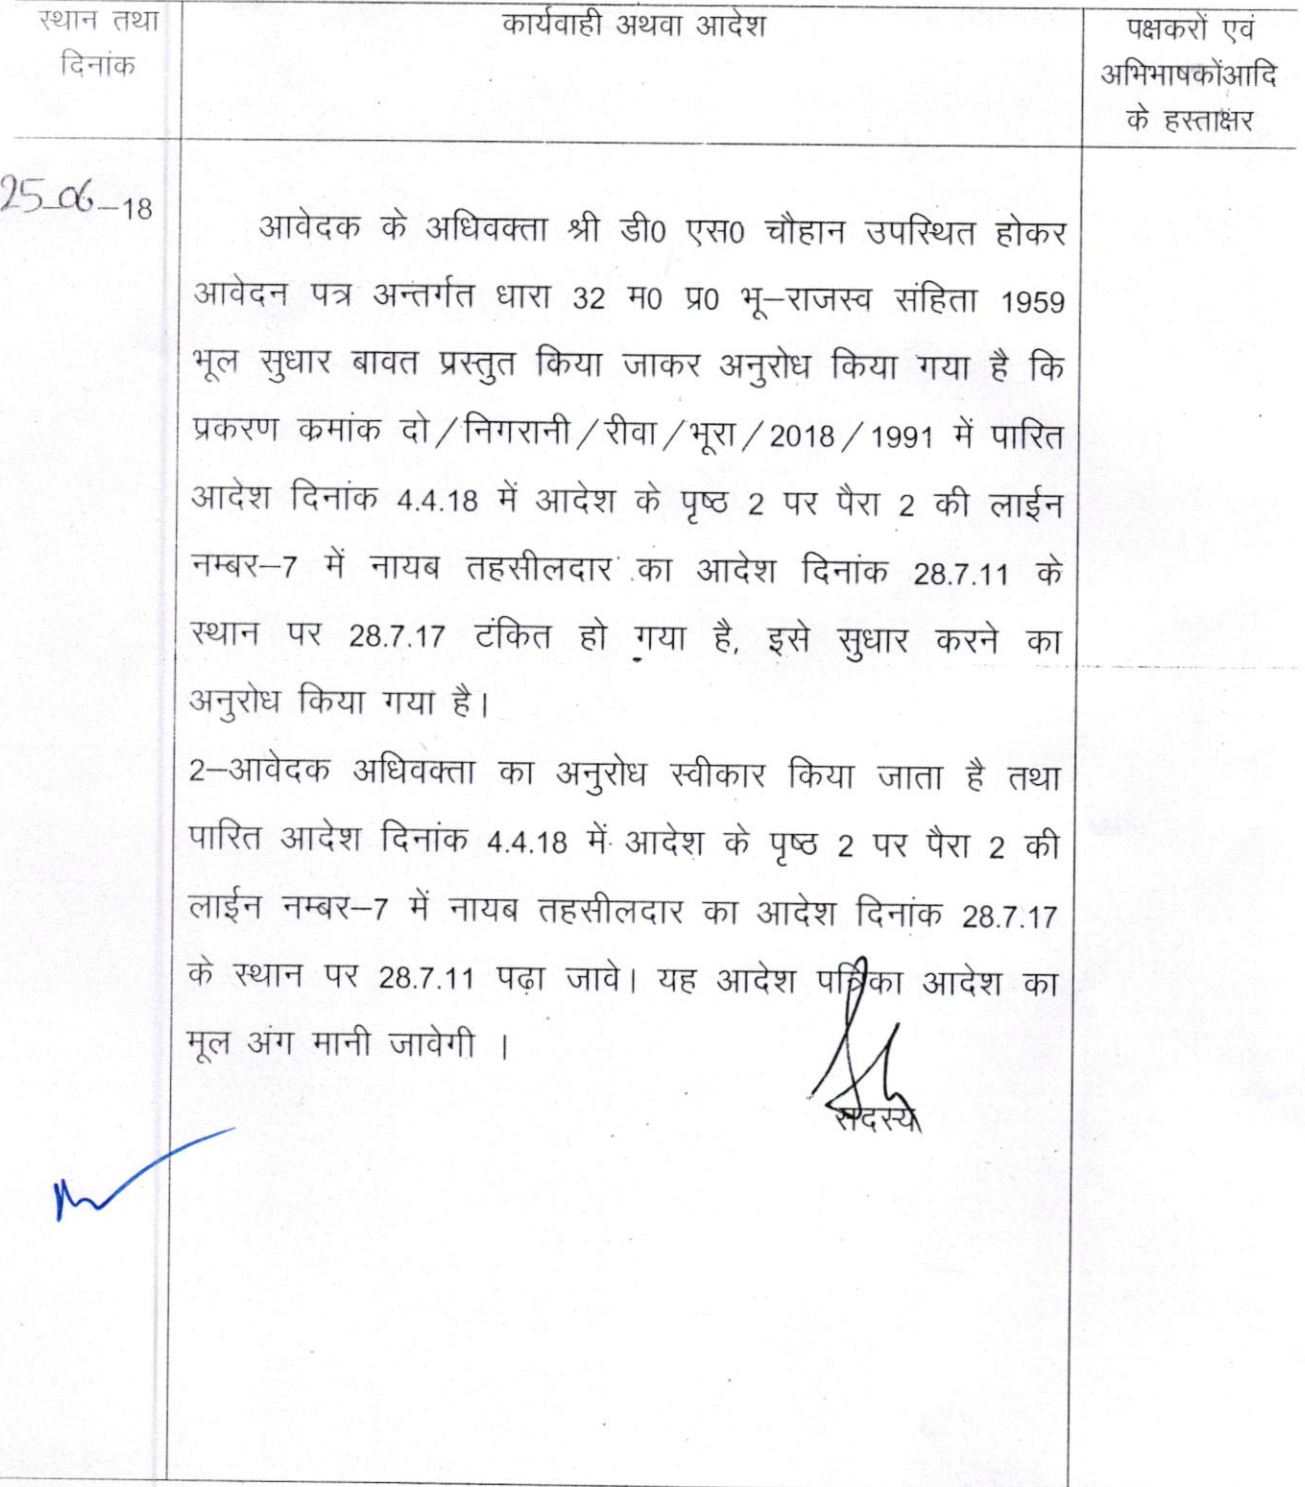 स्थान तथा
दिनांक
कार्यवाही अथवा आदेश
पक्षकरों एवं
अभिभाषकोंआदि
के हस्ताक्षर
25-06-18
आवेदक के अधिवक्ता श्री डी0 एस0 चौहान उपस्थित होकर
आवेदन पत्र अन्तर्गत धारा 32 म0 प्र0 भू–राजस्व संहिता 1959
भूल सुधार बावत प्रस्तुत किया जाकर अनुरोध किया गया है कि
प्रकरण कमांक दो/निगरानी/रीवा/भूरा/2018/1991 में पारित
आदेश दिनांक 4.4.18 में आदेश के पृष्ठ 2 पर पैरा 2 की लाईन
नम्बर–7 में नायब तहसीलदार का आदेश दिनांक 28.7.11 के
स्थान पर 28.7.17 टंकित हो गया है, इसे सुधार करने का
अनुरोध किया गया है।
2–आवेदक अधिवक्ता का अनुरोध स्वीकार किया जाता है तथा
पारित आदेश दिनांक 4.4.18 में आदेश के पृष्ठ 2 पर पैरा 2 की
लाईन नम्बर–7 में नायब तहसीलदार का आदेश दिनांक 28.7.17
के स्थान पर 28.7.11 पढ़ा जावे। यह आदेश पत्रिका आदेश का
मूल अंग मानी जावेगी ।
सदस्य